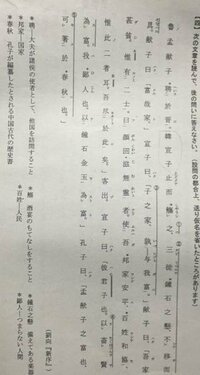 【四】次の文章を読んで、後の問いに答えなさい。（設問の都合上、送り仮名を省いたところがあります
魯孟献子聘於晋。韓宣子止而觴之。三徙鍾石之懸、不移而
具。献子曰「富哉家」。宣子曰「子之家、孰与我富」。献子曰「吾家
甚貧。惟有二士。曰顔回茲無霊者。使吾邦家安平、百姓和協。
惟此二者耳。吾尽於此矣」。客出。宣子曰「彼君子也。以畜賢
為富。我鄙人也。以鍾石金玉為富」。孔子曰「孟献子之富
可著於春秋也」。
（劉向『新序』）
＊聘―大夫が諸侯の使者として、他国を訪問すること
＊觴 酒宴のもてなしをすること
＊鍾石之懸 備えてある楽器
＊邦家―国家
＊百姓―人民
＊鄙人―つまらない人間
＊春秋 孔子が編纂したとされる中国古代の歴史書